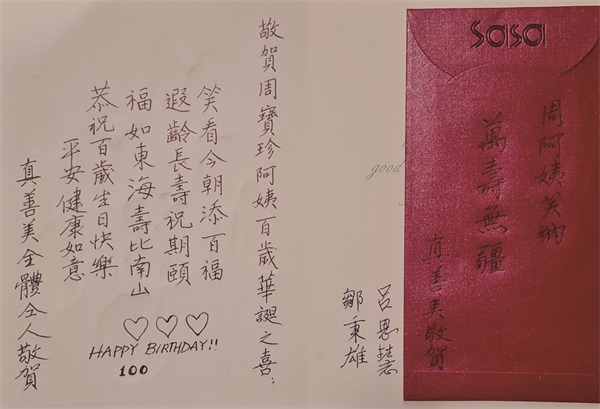 敬賀周寶珍阿姨百歲華誕之喜：
笑看今朝添百福
遐齡長壽祝期頤
福如東海壽比南山
恭祝百歲生日快樂
平安健康如意
真善美全體仝人敬賀
HAPPY BIRTHDAY!!
100
呂思慧
鄒秉雄
good
sasa
周阿姨笑納
萬壽無疆
真善美敬賀